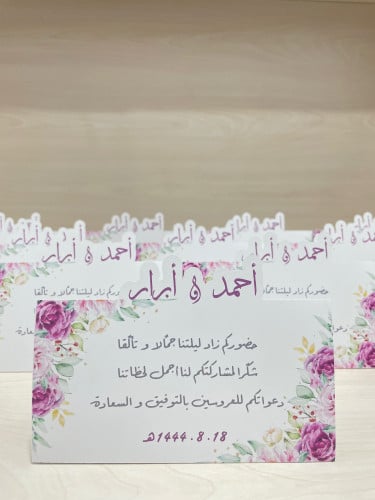 أحمد & أبرار
حضوركم زاد ليلتنا جمالا و تألقا
شكرا لمشاركتكم لنا أجمل لحظاتنا
دعواتكم للعروسين بالتوفيق و السعادة
1444.8.18هـ